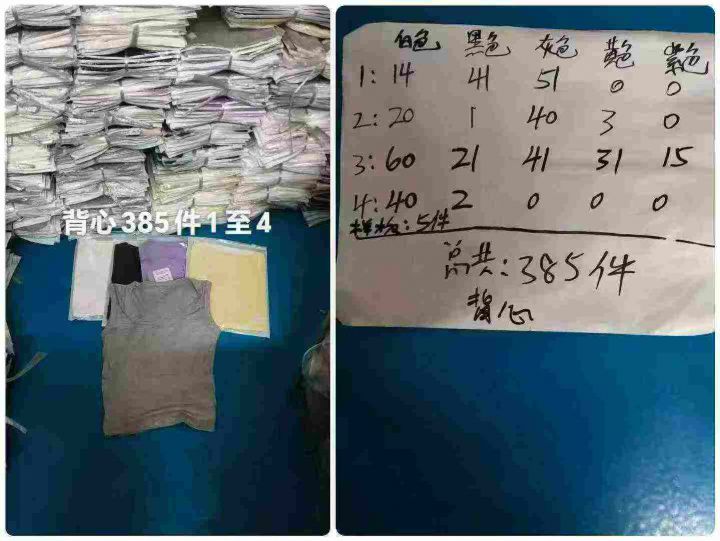 背心385件1至4
白色 黑色 灰色 黄色 紫色
1: 14 41 51 0 0
2: 20 1 40 3 0
3: 60 21 41 31 15
4: 40 2 0 0 0
样板: 5件
总共: 385件
背心